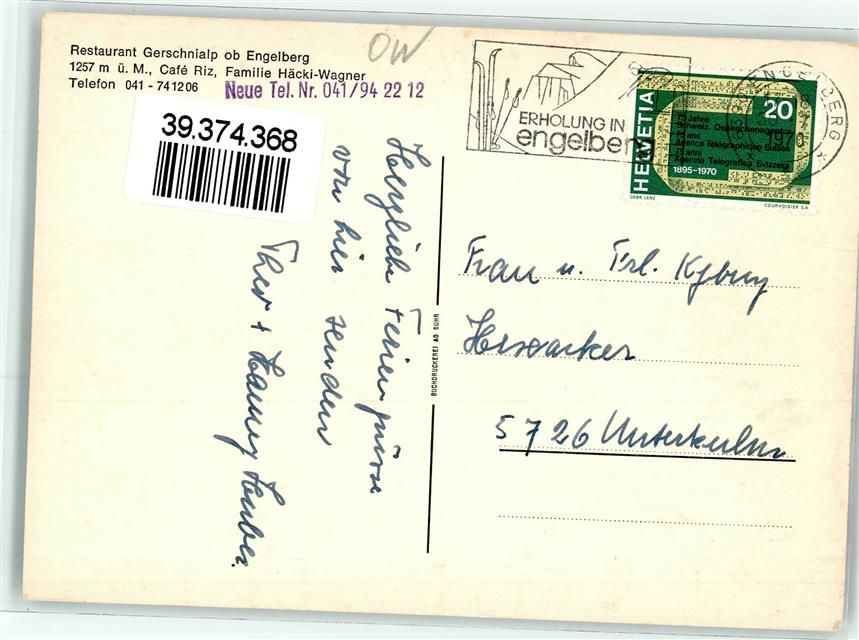 Restaurant Gerschnialp ob Engelberg
1257 m ü. M., Café Riz, Familie Häcki-Wagner
Telefon 041 - 741206
Neue Tel. Nr. 041/94 22 12
OW
39.374.368
ERHOLUNG IN
engelberg
ENGELBERG
1970
HELVETIA
20
75 Jahre
Schweiz. Depeschenagentur
75 ans
Agence Télégraphique Suisse
75 anni
Agenzia Telegrafica Svizzera
1895-1970
GEBR. LENZ
COURVOISIER S.A.
Herzliche Feriengrüsse
von hier senden
Theo + Hanny Huber.
BUCHDRUCKEREI AG SUHR
Frau u. Frl. Kyburz
5726 Unterkulm